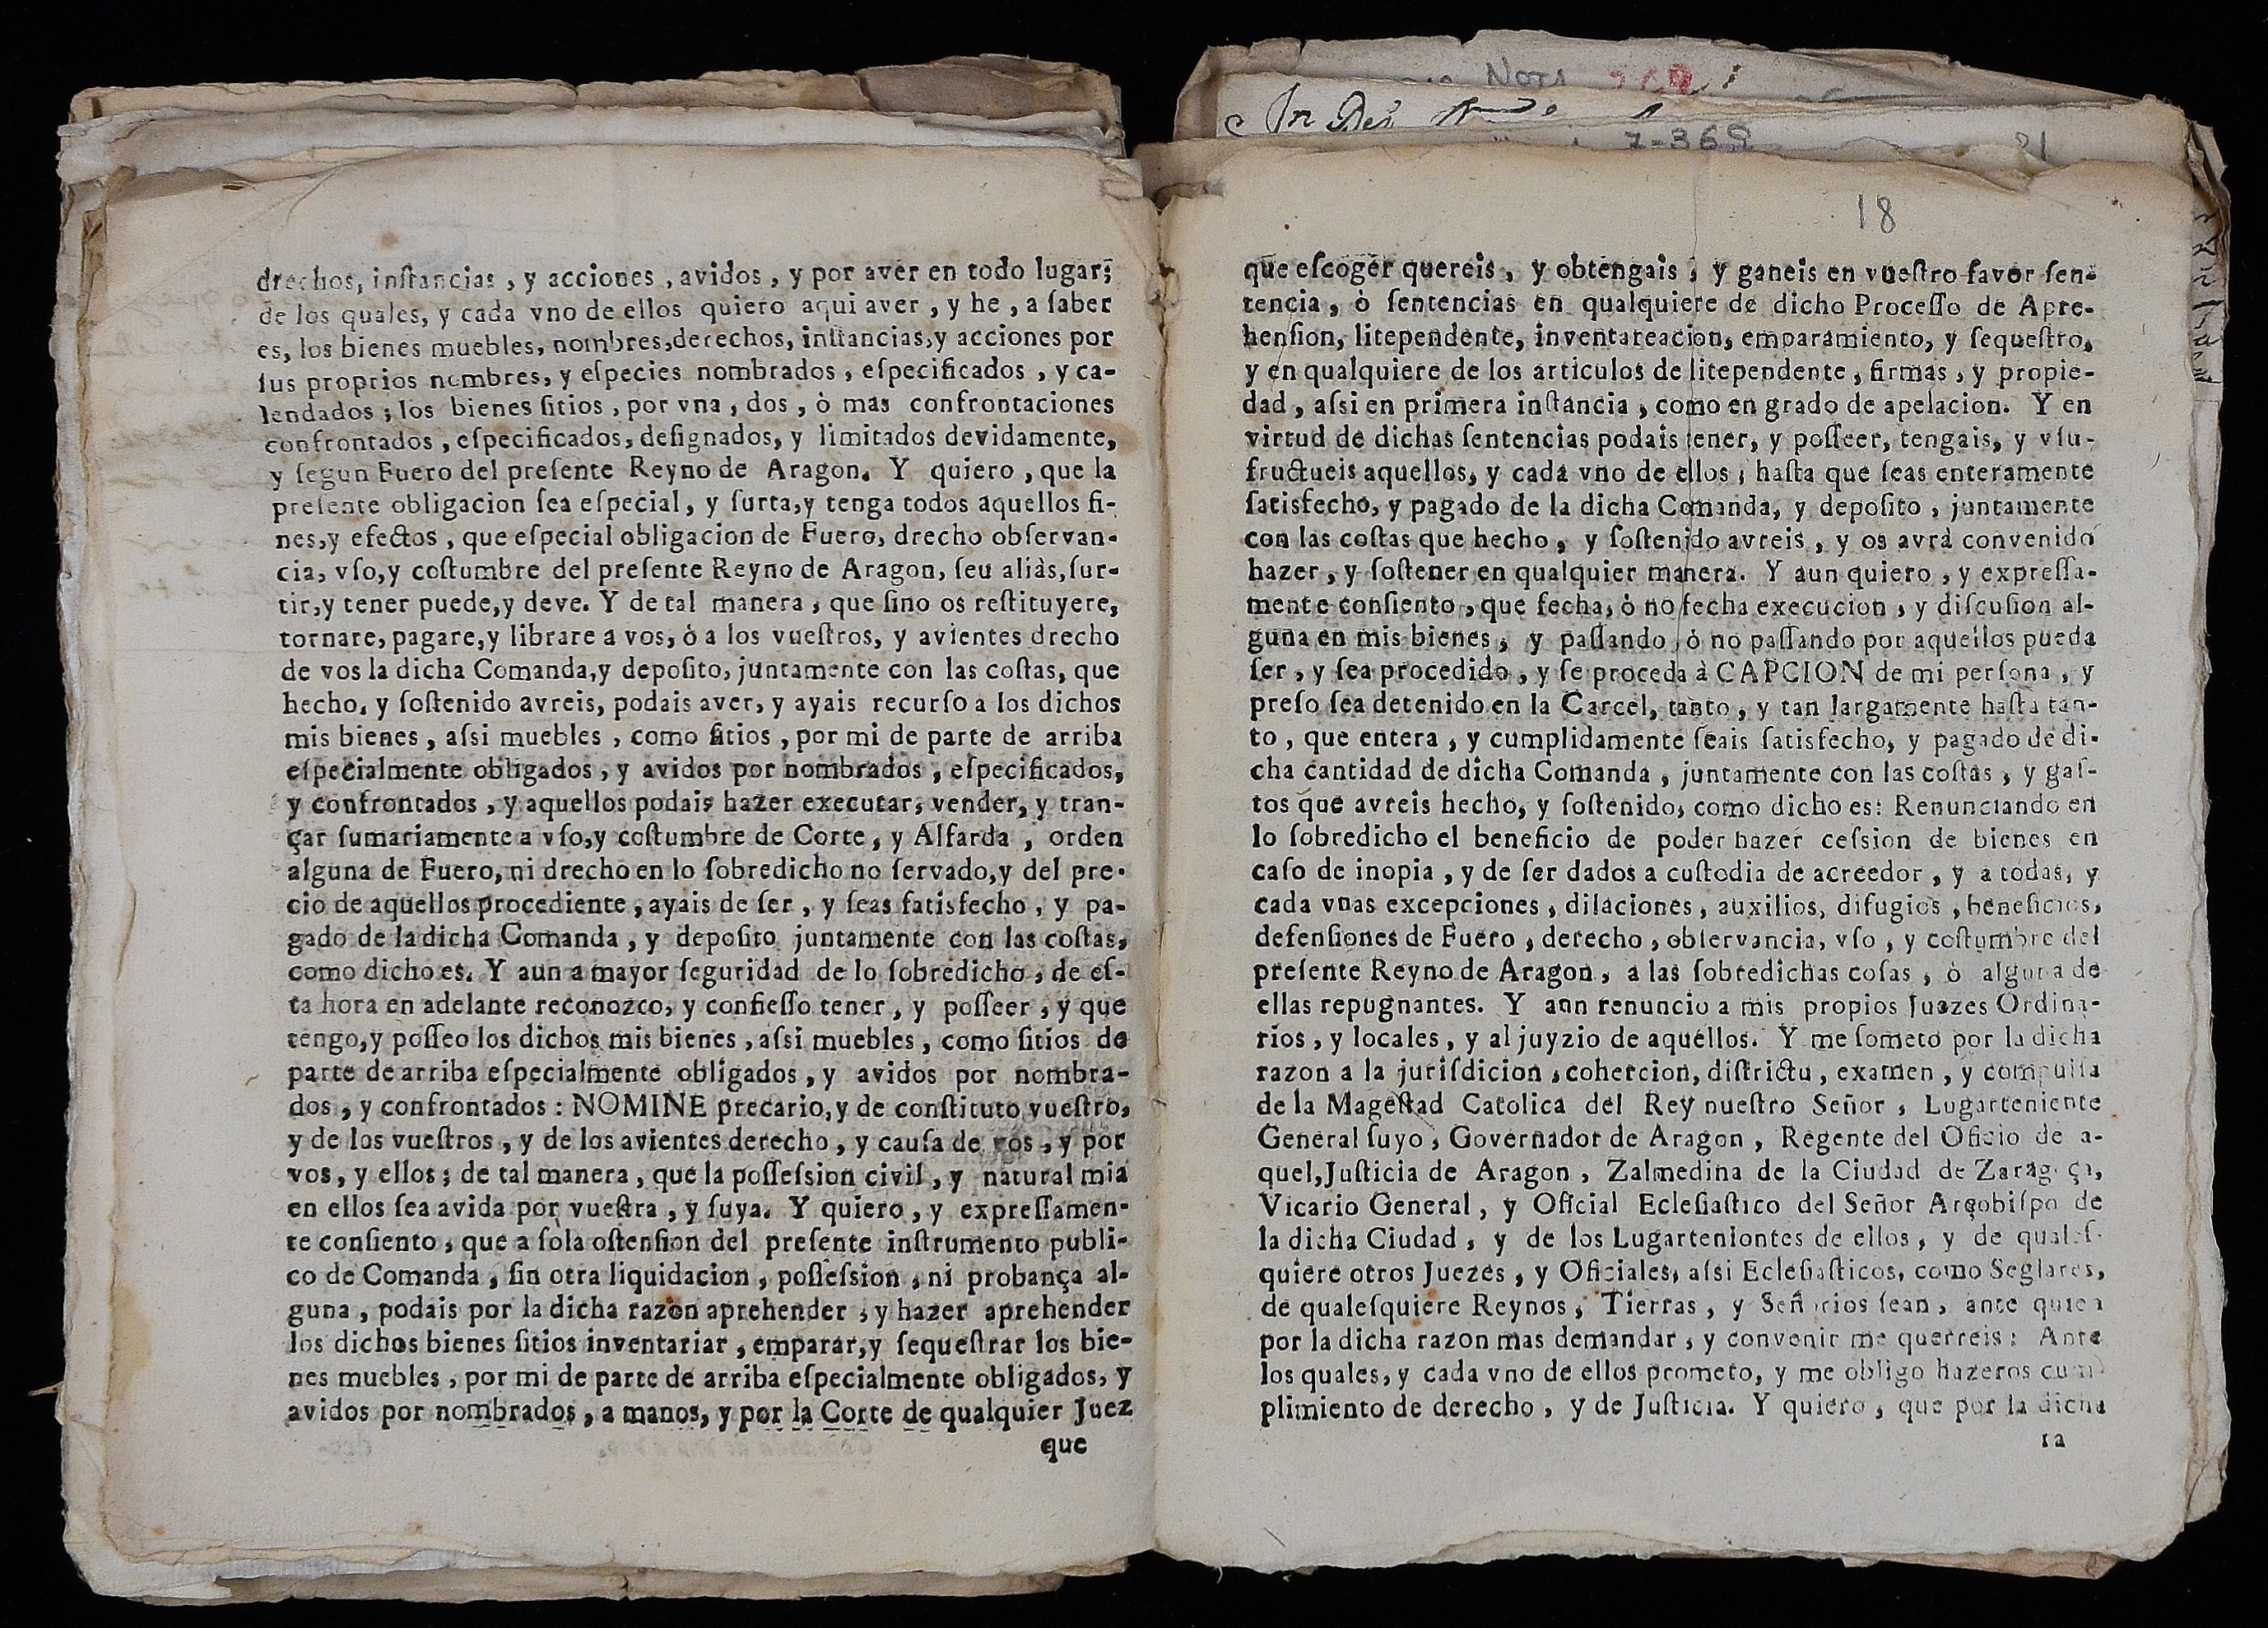 drechos, inſtancias, y acciones, avidos, y por aver en todo lugar;
de los quales, y cada vno de ellos quiero aqui aver, y he, a ſaber
es, los bienes muebles, nombres, derechos, inſtancias, y acciones por
ſus proprios nombres, y eſpecies nombrados, eſpecificados, y ca-
lendados; los bienes ſitios, por vna, dos, ò mas confrontaciones
confrontados, eſpecificados, deſignados, y limitados devidamente,
y ſegun Fuero del preſente Reyno de Aragon. Y quiero, que la
preſente obligacion ſea eſpecial, y ſurta, y tenga todos aquellos fi-
nes, y efectos, que eſpecial obligacion de Fuero, drecho obſervan-
cia, vſo, y coſtumbre del preſente Reyno de Aragon, ſeu aliàs, ſur-
tir, y tener puede, y deve. Y de tal manera, que ſino os reſtituyere,
tornare, pagare, y librare a vos, ò a los vueſtros, y avientes drecho
de vos la dicha Comanda, y depoſito, juntamente con las coſtas, que
hecho, y ſoſtenido avreis, podais aver, y ayais recurſo a los dichos
mis bienes, aſsi muebles, como ſitios, por mi de parte de arriba
eſpecialmente obligados, y avidos por nombrados, eſpecificados,
y confrontados, y aquellos podais hazer executar, vender, y tran-
çar ſumariamente a vſo, y coſtumbre de Corte, y Alfarda, orden
alguna de Fuero, ni drecho en lo ſobredicho no ſervado, y del pre-
cio de aquellos procediente, ayais de ſer, y ſeas ſatisfecho, y pa-
gado de la dicha Comanda, y depoſito juntamente con las coſtas,
como dicho es. Y aun a mayor ſeguridad de lo ſobredicho, de eſ-
ta hora en adelante reconozco, y confieſſo tener, y poſſeer, y que
tengo, y poſſeo los dichos mis bienes, aſsi muebles, como ſitios de
parte de arriba eſpecialmente obligados, y avidos por nombra-
dos, y confrontados: NOMINE precario, y de conſtituto vueſtro,
y de los vueſtros, y de los avientes derecho, y cauſa de vos, y por
vos, y ellos; de tal manera, que la poſſeſsion civil, y natural mia
en ellos ſea avida por vueſtra, y ſuya. Y quiero, y expreſſamen-
te conſiento, que a ſola oſtenſion del preſente inſtrumento publi-
co de Comanda, ſin otra liquidacion, poſſeſsion, ni probança al-
guna, podais por la dicha razon aprehender, y hazer aprehender
los dichos bienes ſitios inventariar, emparar, y ſequeſtrar los bie-
nes muebles, por mi de parte de arriba eſpecialmente obligados, y
avidos por nombrados, a manos, y por la Corte de qualquier Juez
que
In Dei
NOTA
7-368
18
que eſcoger quereis, y obtengais, y ganeis en vueſtro favor ſen-
tencia, ò ſentencias en qualquiere de dicho Proceſſo de Apre-
henſion, litependente, inventareacion, emparamiento, y ſequeſtro,
y en qualquiere de los articulos de litependente, firmas, y propie-
dad, aſsi en primera inſtancia, como en grado de apelacion. Y en
virtud de dichas ſentencias podais tener, y poſſeer, tengais, y vſu-
fructueis aquellos, y cada vno de ellos, haſta que ſeas enteramente
ſatisfecho, y pagado de la dicha Comanda, y depoſito, juntamente
con las coſtas que hecho, y ſoſtenido avreis, y os avrà convenido
hazer, y ſoſtener en qualquier manera. Y aun quiero, y expreſſa-
mente conſiento, que fecha, ò no fecha execucion, y diſcuſion al-
guna en mis bienes, y paſſando, ò no paſſando por aquellos pueda
ſer, y ſea procedido, y ſe proceda à CAPCION de mi perſona, y
preſo ſea detenido en la Carcel, tanto, y tan largamente haſta tan-
to, que entera, y cumplidamente ſeais ſatisfecho, y pagado de di-
cha cantidad de dicha Comanda, juntamente con las coſtas, y gaſ-
tos que avreis hecho, y ſoſtenido, como dicho es: Renunciando en
lo ſobredicho el beneficio de poder hazer ceſsion de bienes en
caſo de inopia, y de ſer dados a cuſtodia de acreedor, y a todas, y
cada vnas excepciones, dilaciones, auxilios, difugios, beneficios,
defenſiones de Fuero, derecho, obſervancia, vſo, y coſtumbre del
preſente Reyno de Aragon, a las ſobredichas coſas, ò alguna de
ellas repugnantes. Y aun renuncio a mis propios Juezes Ordina-
rios, y locales, y al juyzio de aquellos. Y me ſometo por la dicha
razon a la juriſdicion, cohercion, diſtrictu, examen, y compulſa
de la Mageſtad Catolica del Rey nueſtro Señor, Lugarteniente
General ſuyo, Governador de Aragon, Regente del Oficio de a-
quel, Juſticia de Aragon, Zalmedina de la Ciudad de Zaragoça,
Vicario General, y Oficial Ecleſiaſtico del Señor Arçobiſpo de
la dicha Ciudad, y de los Lugarteniontes de ellos, y de qualeſ-
quiere otros Juezes, y Oficiales, aſsi Ecleſiaſticos, como Seglares,
de qualeſquiere Reynos, Tierras, y Señorios ſean, ante quien
por la dicha razon mas demandar, y convenir me querreis: Ante
los quales, y cada vno de ellos prometo, y me obligo hazeros cum-
plimiento de derecho, y de Juſticia. Y quiero, que por la dicha
ra